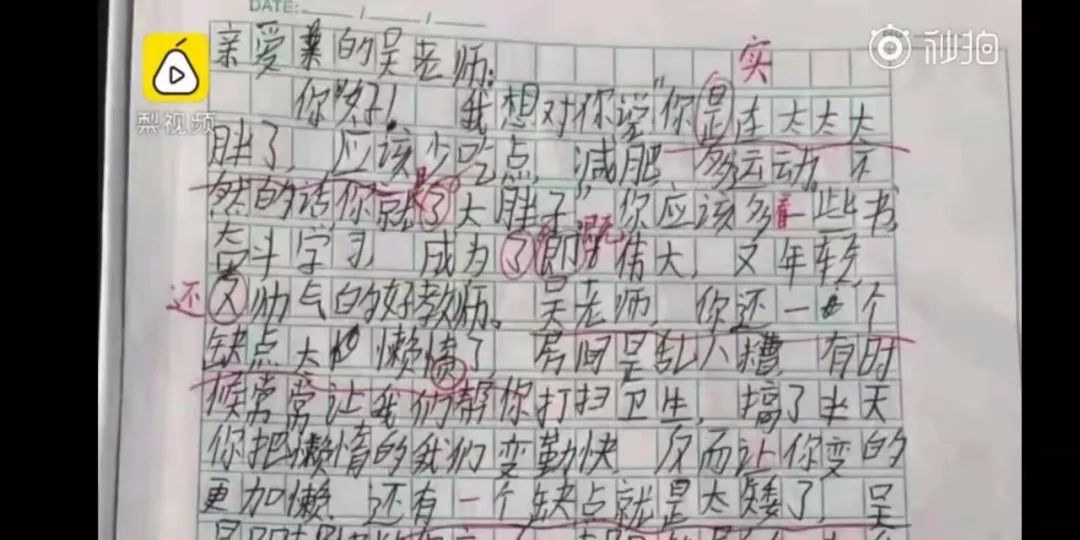 DATE:
秒拍
梨视频
亲爱的吴老师:
实
你好! 我想对你说"你是在太太太
胖了,应该少吃点,减肥 多运动,不
然的话你就是了大胖子,你应该多看一些书
奋斗学习,成为了即既伟大,又年轻,
还又帅气的好教师。吴老师,你还一个
缺点太懒惰了,房间是乱八糟,有时
候常常让我们帮你打扫卫生,搞了半天
你把懒惰的我们变勤快,反而让你变的
更加懒,还有一个缺点就是太矮了,吴